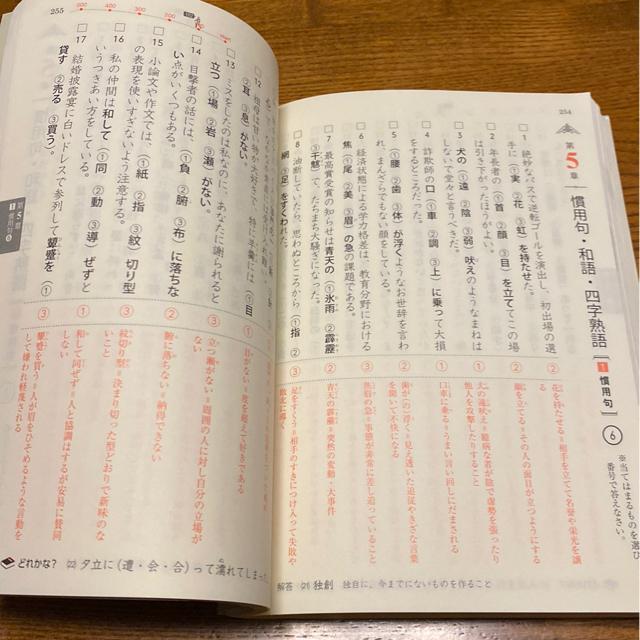 254
第5章 慣用句・和語・四字熟語 [1 慣用句] 6
※当てはまるものを選び
番号で答えなさい。
1 絶妙なパスで逆転ゴールを演出し、初出場の選
手に(①実 ②花 ③虹)を持たせた。
② 花を持たせる=相手を立てて名誉や栄光を譲
る
2 年長者の(①首 ②顔 ③目)を立ててこの場
は引き下がったほうがよい。
② 顔を立てる=その人の面目が立つようにする
3 犬の(①遠 ②陰 ③弱)吠えのようなまねは
しないで堂々と言うべきだ。
① 犬の遠吠え=臆病な者が陰で虚勢を張ったり
他人を攻撃したりすること
4 詐欺師の口(①車 ②調 ③上)に乗って大損
をするところだった。
① 口車に乗る=うまい言い回しにだまされる
5 (①腰 ②歯 ③体)が浮くようなお世辞を言わ
れ、まんざらでもない顔をしている。
② 歯が浮く=見え透いた追従やきざな言葉
を聞いて不快になる
6 経済状態による学力格差は、教育分野における
焦(①尾 ②美 ③眉)の急の課題である。
③ 焦眉の急=事態が非常に差し迫っていること
7 最高賞受賞の知らせは青天の(①氷雨 ②霹靂
③干魃)で、たちまち大騒ぎになった。
② 青天の霹靂=突然の変動・大事件
8 油断していたら、思わぬところから(①指 ②
網 ③足)をすくわれた。
③ 足をすくう=相手のすきにつけ入って失敗や
敗北に導く
解答 独創 独自に、今までにないものを作ること
255
第5章
1 慣用句6
12 祖母は甘い物が大好きで、特に羊羹には(①目
②耳 ③息)がない。
① 目がない=度を超えて好きである
13 ミスをしたのは私なのに、あなたに謝られると
立つ(①場 ②岩 ③瀬)がない。
③ 立つ瀬がない=周囲の人に対し自分の立場が
ない
14 目撃者の話には、(①負 ②腑 ③布)に落ちな
い点がいくつもある。
② 腑に落ちない=納得できない
15 小論文や作文では、(①紙 ②指 ③紋)切り型
の表現を使いすぎないよう注意する。
③ 紋切り型=決まり切った型どおりで新味のな
いこと
16 私の仲間は和して(①同 ②動 ③導)ぜずと
いうつきあい方をしている。
① 和して同ぜず=人と協調はするが安易に賛同
しない
17 結婚披露宴に白いドレスで参列して顰蹙を(①
貸す ②売る ③買う)。
③ 顰蹙を買う=人が眉をひそめるような言動を
して嫌われ軽蔑される
どれかな? 夕立に(遭・会・合)って濡れてしまっ